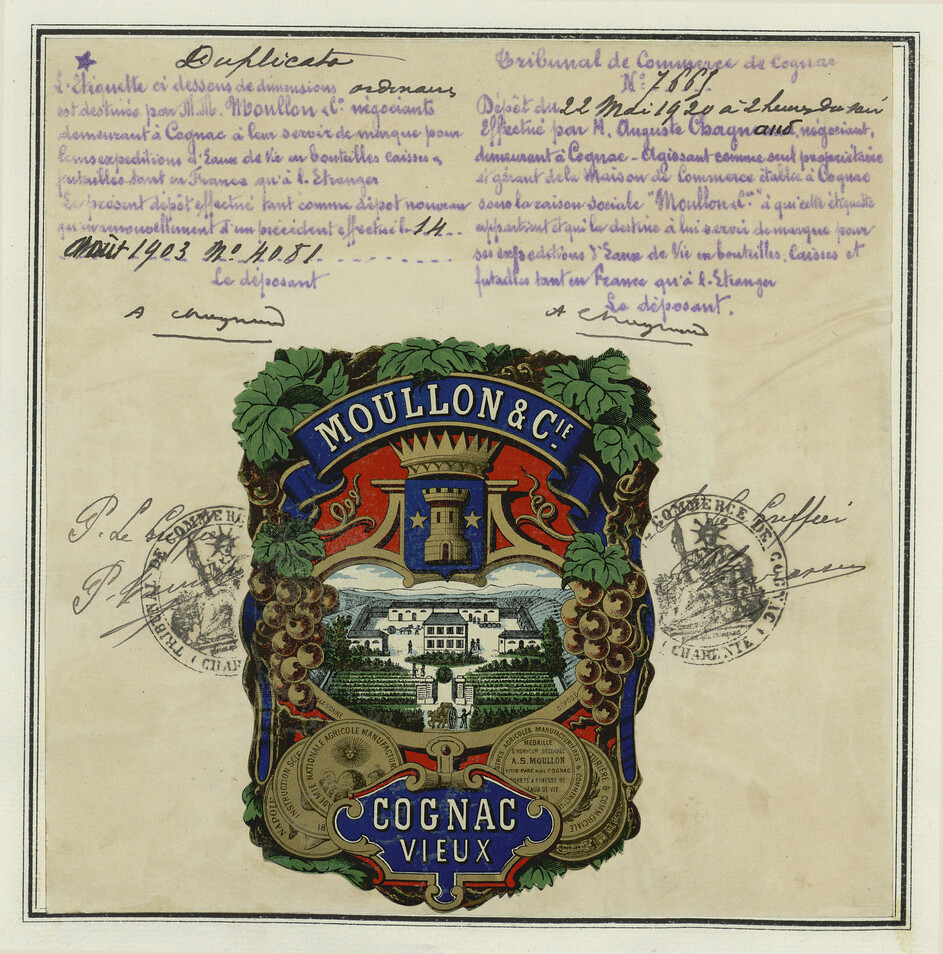 Duplicata
L'Etiquette ci dessous de dimensions ordinaires
est destinée par M.M. Moullon & Cie négociants
demeurant à Cognac à leur servir de marque pour
leurs expeditions d'Eaux de Vie en bouteilles caisses &
futailles tant en France qu'à l'Etranger
Le présent dépôt effectué tant comme dépôt nouveau
qu'en renouvellement d'un précédent effectué le 14
Août 1903 No 4081
Le déposant
Tribunal de Commerce de Cognac
No 7669
Dépôt du 22 Mai 1920 à 2 heures du soir
Effectué par M. Auguste Chagneaud, négociant,
demeurant à Cognac - Agissant comme seul propriétaire
et gérant de la Maison de Commerce établie à Cognac
sous la raison sociale "Moullon & Cie" à qui cette étiquette
appartient et qui la destine à lui servir de marque pour
ses expeditions d'Eaux de Vie en bouteilles, Caisses et
futailles tant en France qu'à l'Etranger
Le déposant.
MOULLON & CIE
P. Le
TRIBUNAL DE COMMERCE
(CHAR
Greffier
COMMERCE DE COGNAC
CHARENTE
DÉPOSÉ
INSTRUCTION
NATIONALE AGRICOLE MANUFACTUR
AGRICOLES MANUFACTURIÈRES &
MÉDAILLE
D'HONNEUR DÉCERNÉE
A. S. MOULLON
COGNAC
& FINESSE DE
EAUX DE VIE
& COMMERCIALE
COGNAC
VIEUX